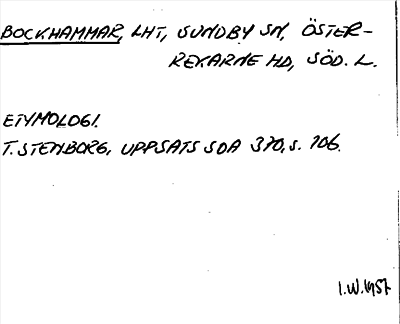 BOCKHAMMAR, LHT, SUNDBY SN, ÖSTER-
REKARNE HD, SÖD. L.
ETYMOLOGI.
T. STENBORG, UPPSATS SDA 370, S. 106.
I.W. 1957